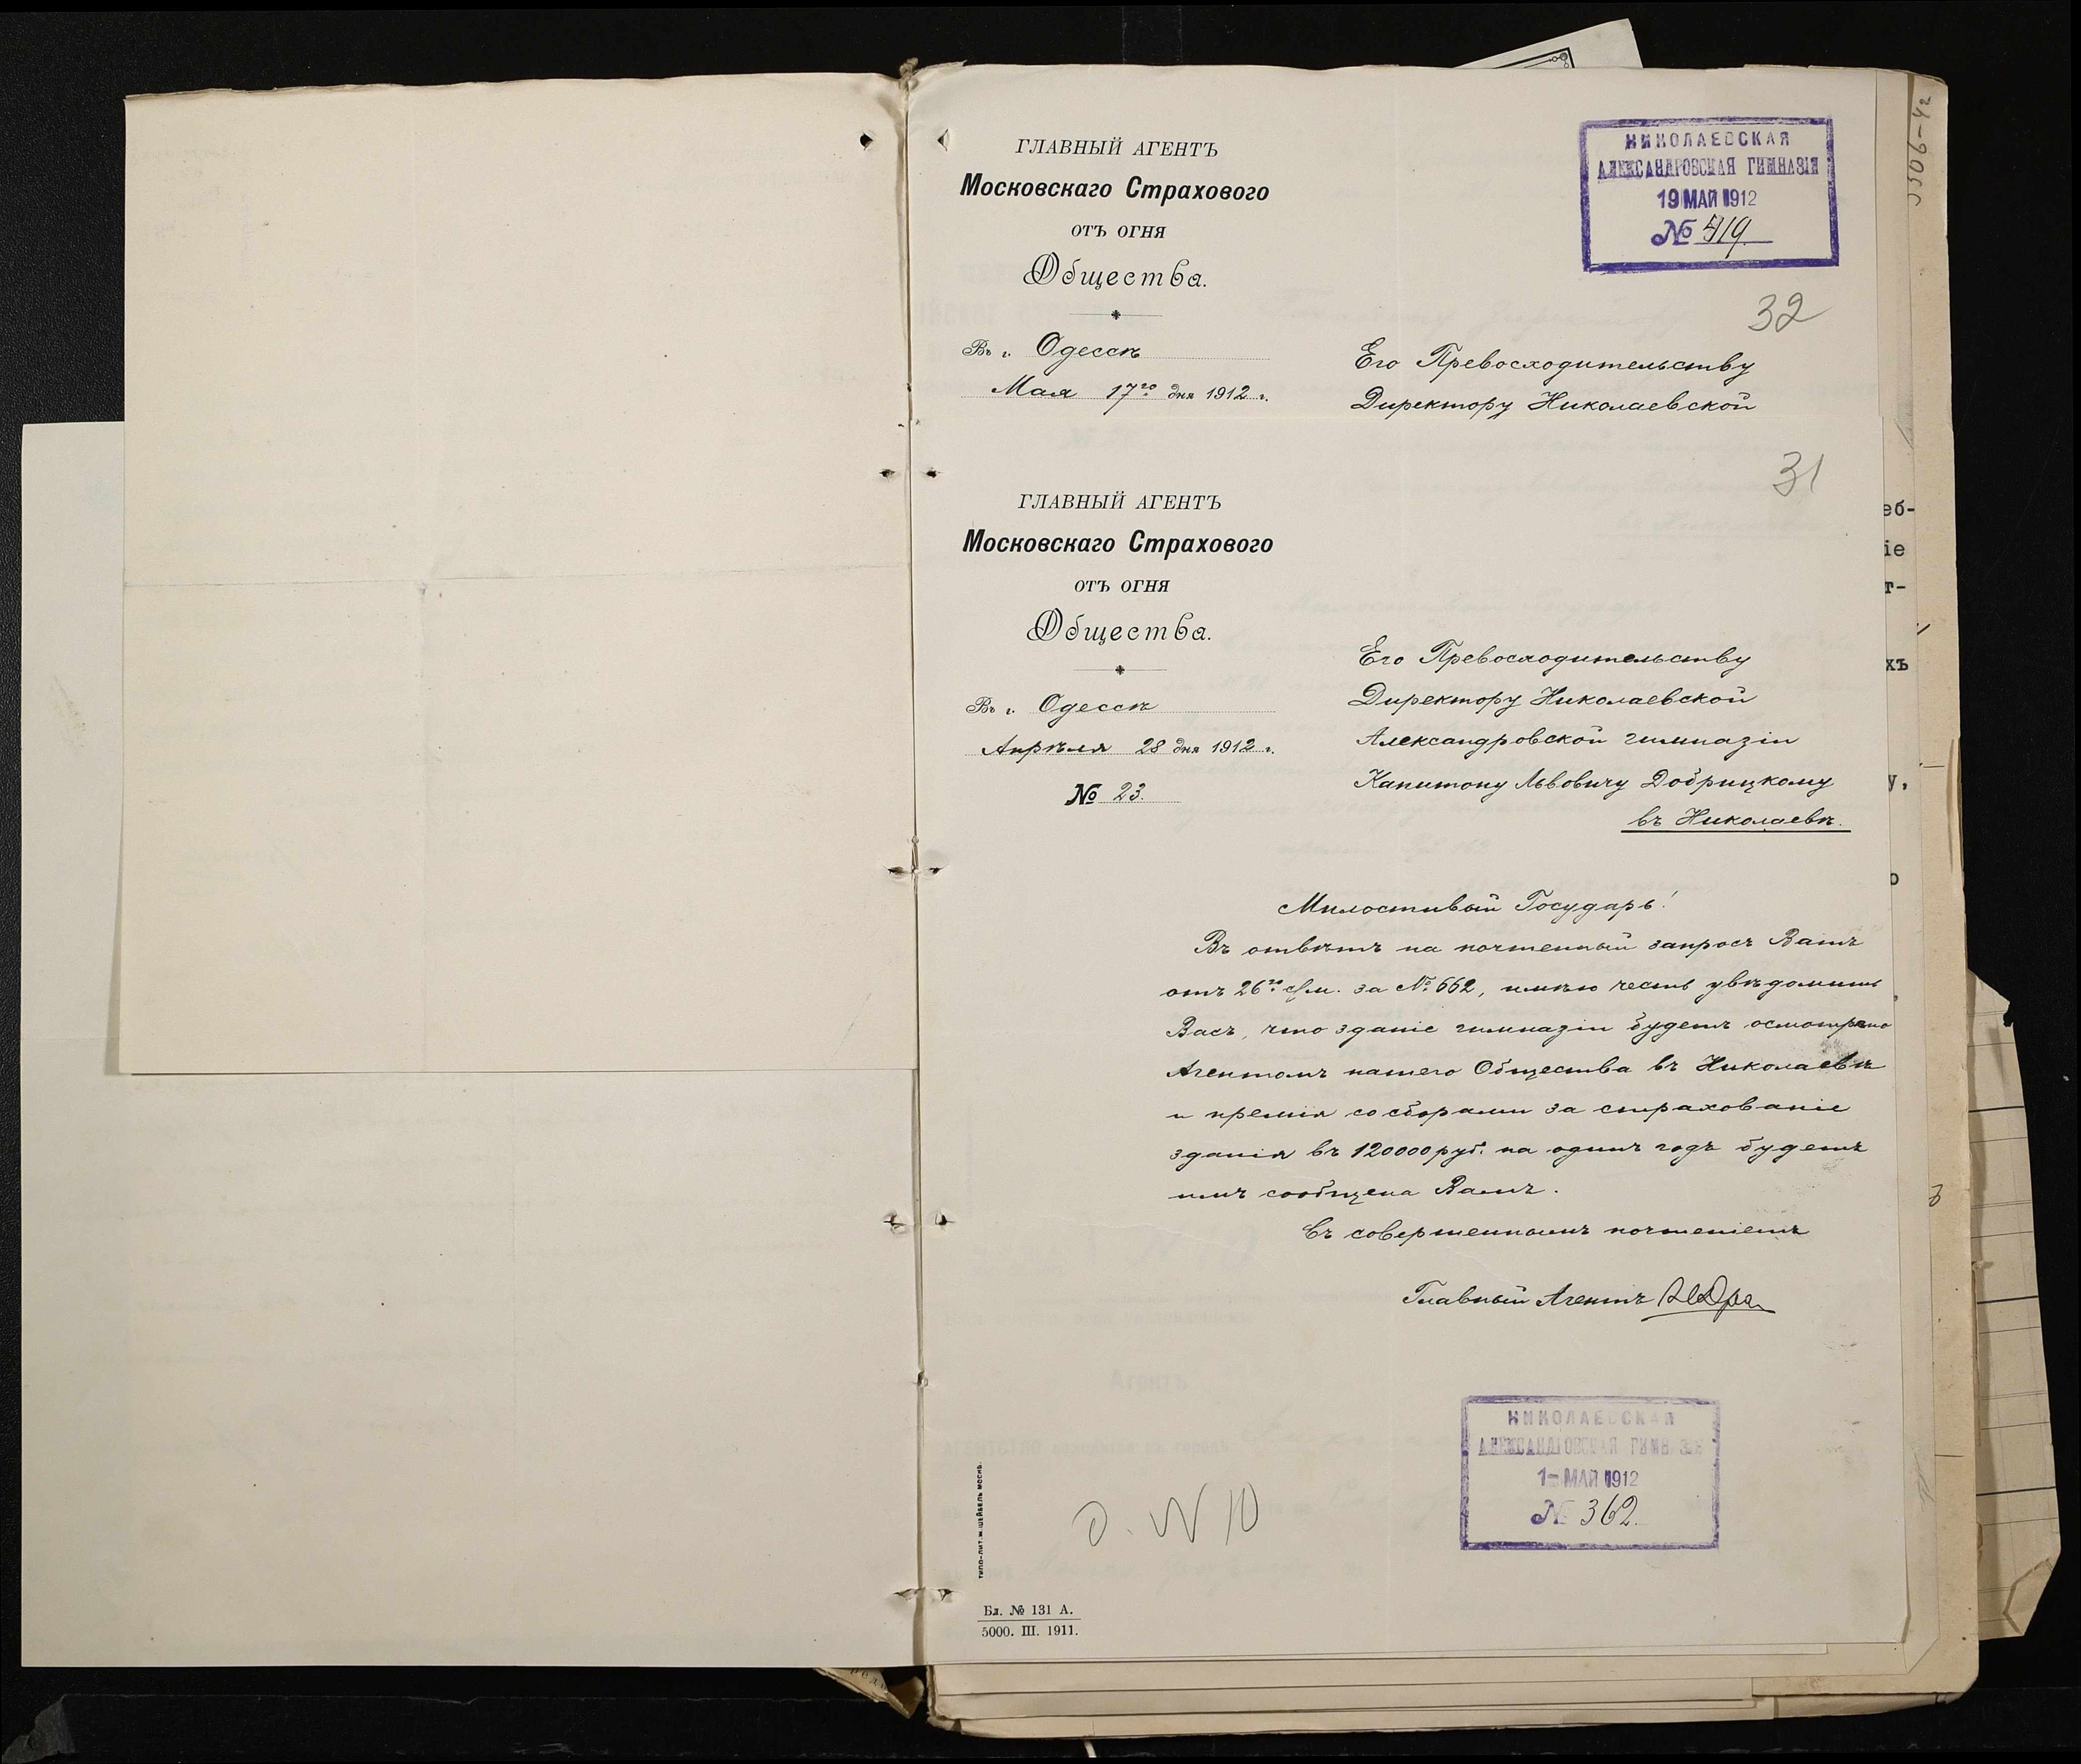 ГЛАВНЫЙ АГЕНТЪ
Московскаго Страхового
отъ огня
Общества.
Въ г. Одессѣ
Мая 17го дня 1912 г.
НИКОЛАЕВСКАЯ
АЛЕКСАНДРОВСКАЯ ГИМНАЗІЯ
19 МАЙ 1912
№ 419
32
Его Превосходительству
Директору Николаевской
31
ГЛАВНЫЙ АГЕНТЪ
Московскаго Страхового
отъ огня
Общества.
Въ г. Одессѣ
Апрѣля 28 дня 1912 г.
№ 23.
Его Превосходительству
Директору Николаевской
Александровской гимназіи
Капитону Львовичу Добрицкому
въ Николаевѣ.
Милостивый Государь!
Въ отвѣтъ на почтенный запросъ Вашъ
отъ 26го с/м. за №662, имѣю честь увѣдомить
Васъ, что зданіе гимназіи будетъ осмотрѣно
Агентомъ нашего Общества въ Николаевѣ
и премія со сборами за страхованіе
зданія въ 120000 руб. на одинъ годъ будетъ
имъ сообщена Вамъ.
Съ совершеннымъ почтеніемъ
Главный Агентъ
НИКОЛАЕВСКАЯ
АЛЕКСАНДРОВСКАЯ ГИМНАЗІЯ
1- МАЙ 1912
№ 362.
д. N 10
Бл. № 131 А.
5000. III. 1911.
еб-
іе
т-
хъ
у,